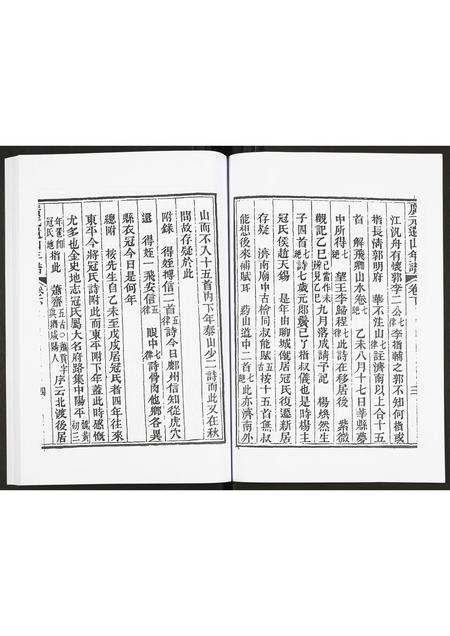 廣元遺山年譜卷下
江汎舟有懷郭李二公七律李指輔之郭不知何指或
指長倩郭明府 華不注山七律註濟南以上合十五
首 解飛卿山水卷七絕 乙未八月十七日莘縣夢
中所得七絕 望王李歸程七律此詩在移居後 紫微
觀記乙巳九月落成請予記 楊煥然生
子四首七絕詩七歲元郎髩已了指叔儀也是時楊主
冠氏侯趙天錫 是年由聊城僦居冠氏復遷新居
存疑 濟南廟中古檜同叔能賦五古按十五首無叔
能想後來補賦耳 葯山道中二首七絕此亦濟南外
三
山而不入十五首內下年泰山少二詩而此又在秋
間故存疑於此
附錄 得姪搏信二首五律詩今日鄜州信知從虎穴
還 得姪一飛安信五律 眼中七律詩骨肉他鄉各異
縣衣冠今日是何年
總附 按先生自乙未至戊戌居冠氏者四年往來
東平今將冠氏詩附此而東平附下年蓋此時感慨
尤多也金史地志冠氏屬大名府路集中陽平
冠氏地指此 蕭齋五古序云北渡後居
四